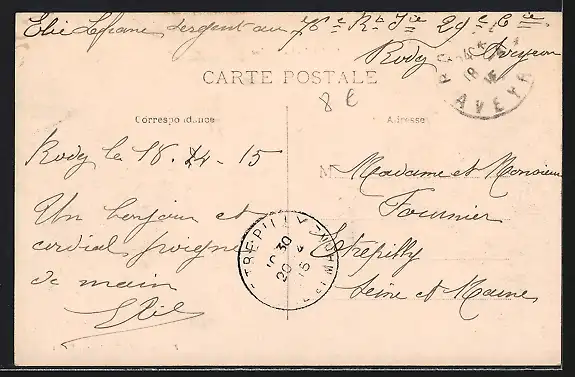 Elie Lafrane sergent au 76e Rt Tie 29e Cie
Rodez Aveyron
CARTE POSTALE
8 €
Correspondance
Adresse
AVEYR
18
Rodez le 18-4-15
Un bonjour et
cordial poignée
de main
Elie
ETREPILLY
10 30
20 4
15
M Madame et Monsieur
Fournier
Etrepilly
Seine et Marne